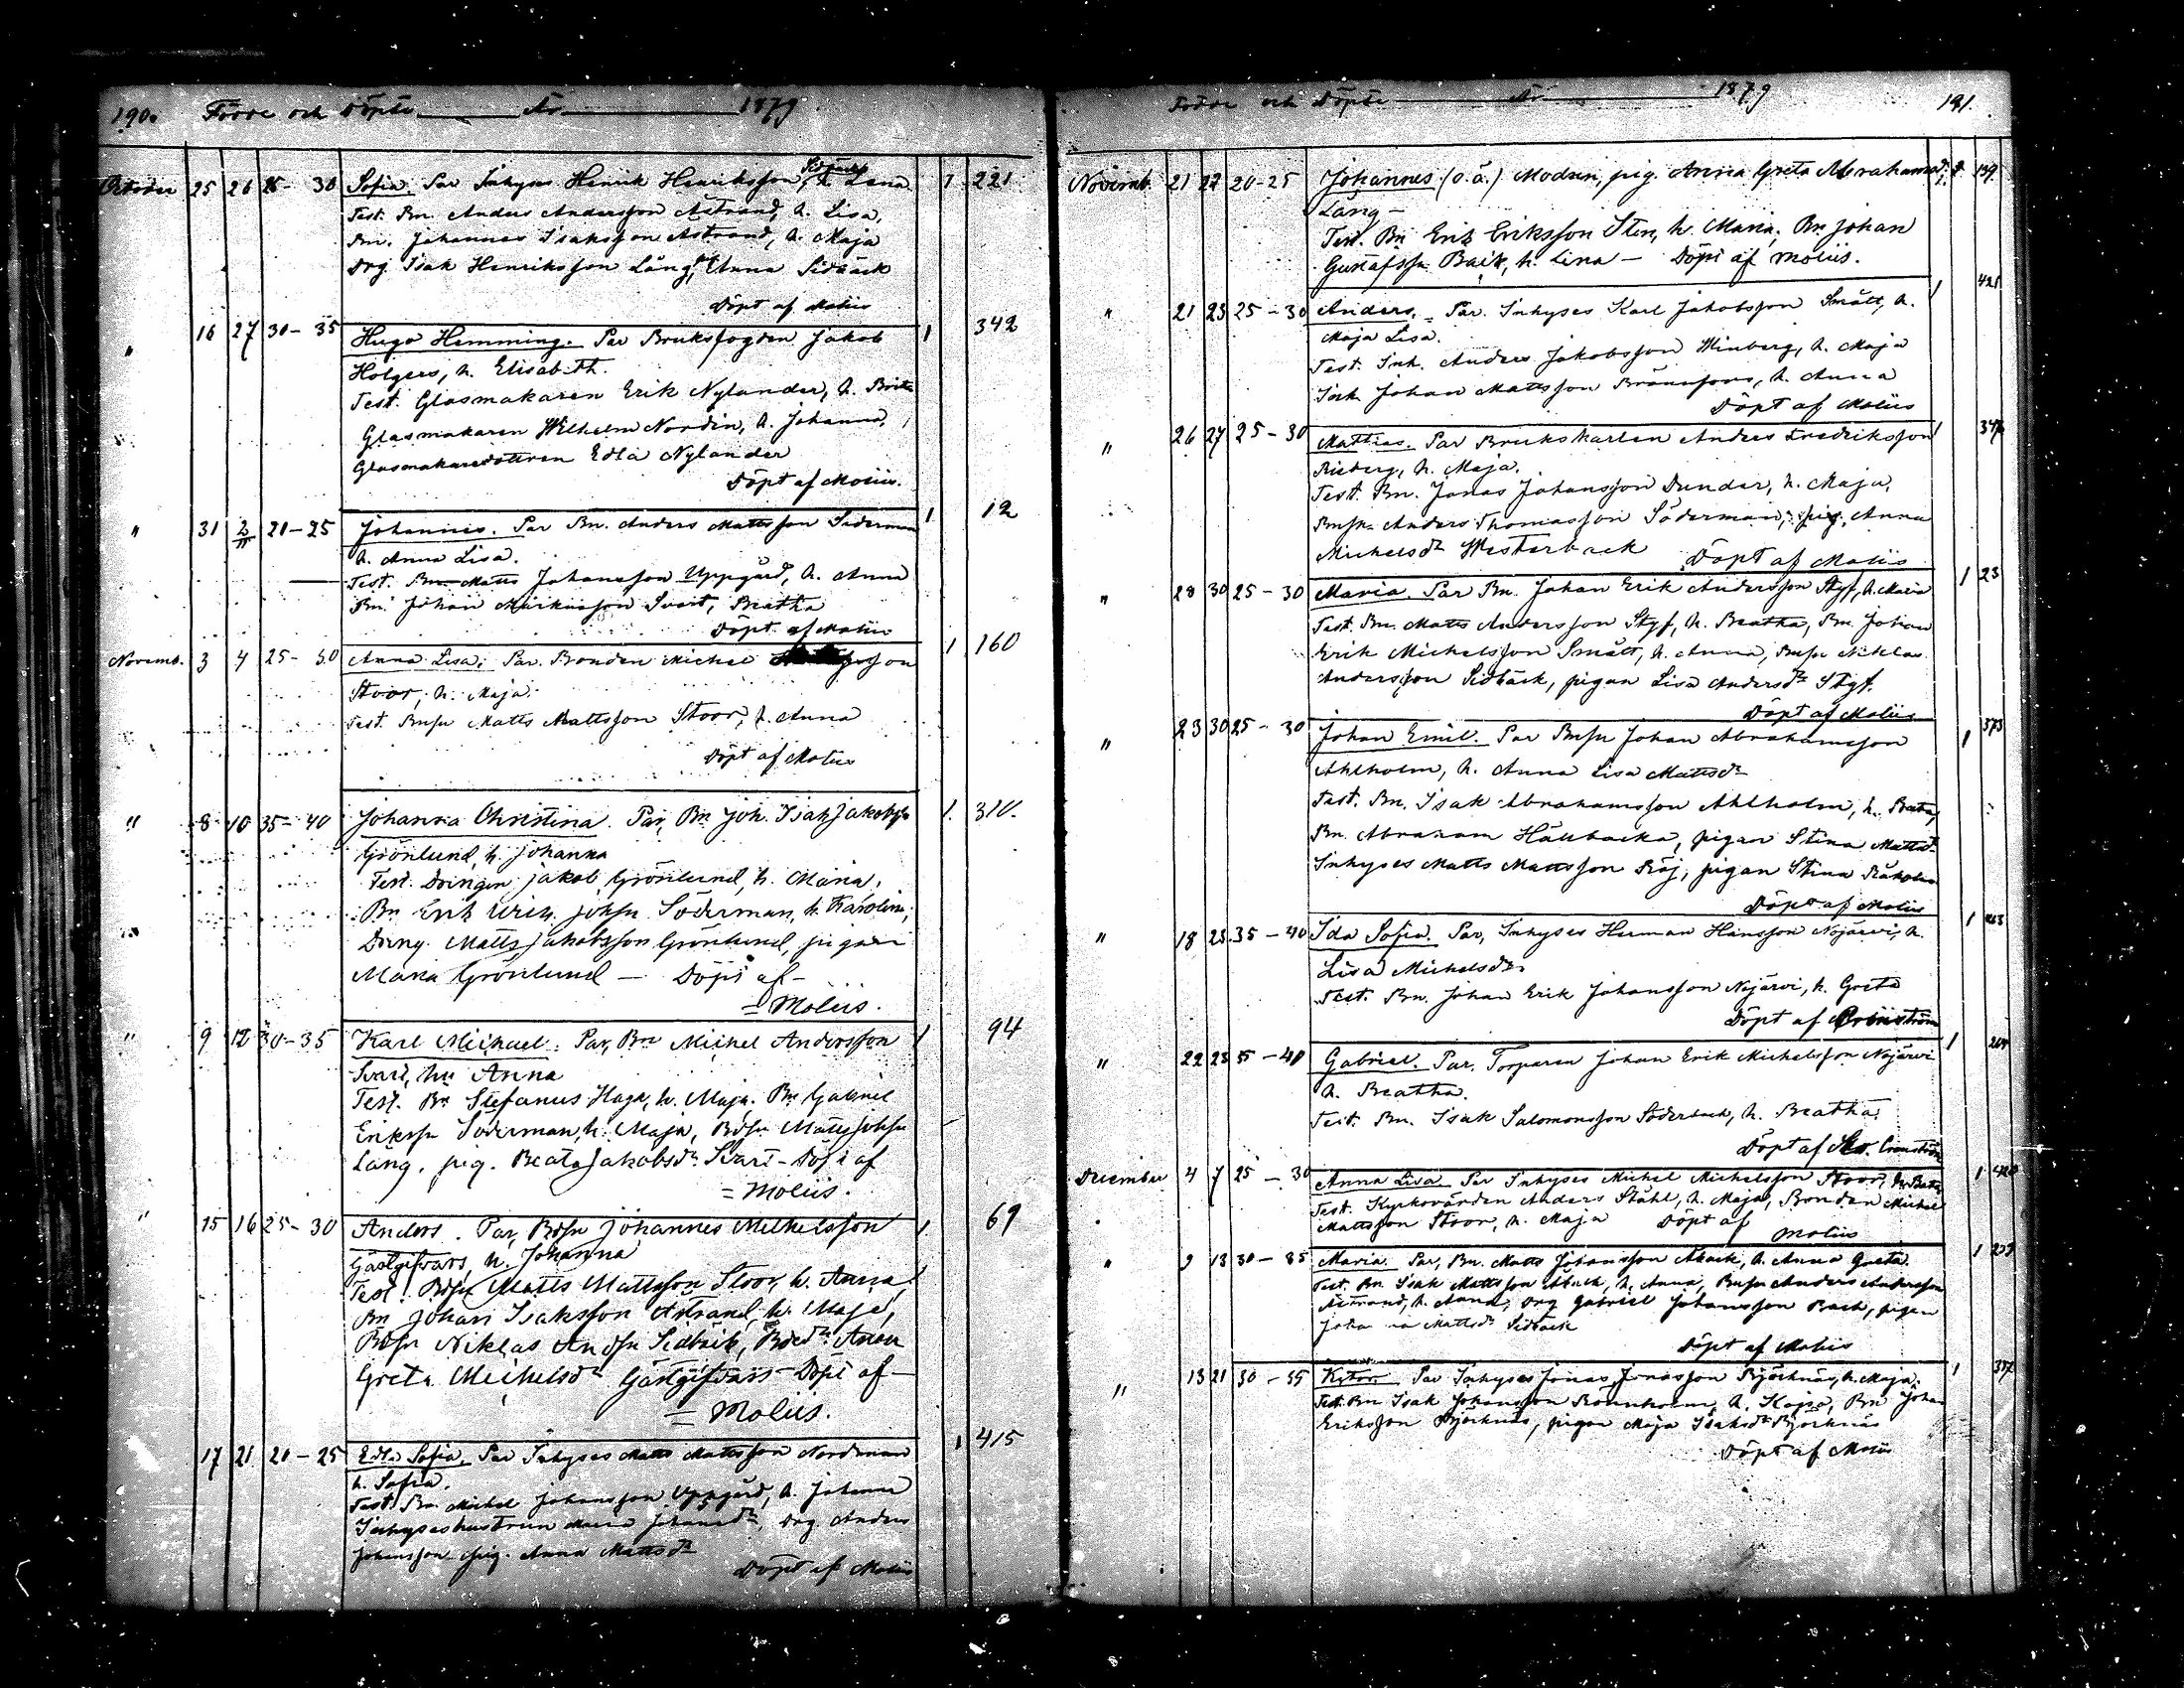 190. Födde och Döpte År 1879
October 25 26 25-30 Sofia. Par Inhyses Henrik Henriksson Sidbäck, h. Lena 1 221
Test. Bn. Anders Andersson Åstrand, h. Lisa,
Bn. Johannes Isaksson Åstrand, h. Maja
Drg Isak Henriksson Lång, Anna Sidbäck
Döpt af Moliis
" 16 27 30-35 Hugo Hemming. Par Bruksfogden Jakob 1 342
Holgers, h. Elisabeth.
Test. Glasmakaren Erik Nylander, h. Brita
Glasmakaren Wilhelm Nordin, h. Johanna,
Glasmakaredottren Edla Nylander
Döpt af Moliis.
" 31 2/11 21-25 Johannes. Par Bn. Anders Mattsson Söderman 1 12
h. Anna Lisa.
Test. Bn. Matts Johansson Uppgård, h. Anna
Bn. Johan Markusson Svart, Beatha
Döpt af Moliis
Novemb. 3 4 25-30 Anna Lisa. Par. Bonden Michel 1 160
Stoor, h. Maja.
Test. Bnsn Matts Mattsson Stoor, h. Anna
Döpt af Moliis
" 8 10 35-40 Johanna Christina. Par, Bn Joh. Isak Jakobss. 1. 310.
Grönlund, h. Johanna
Test. Drängen Jakob Grönlund, h. Maria,
Bn Erik Wilh. Johsn Söderman, h. Karolina,
Dräng. Matts Jakobsson Grönlund, pigan
Maria Grönlund — Döpt af —
= Moliis.
" 9 12 30-35 Karl Michael. Par, Bn Michel Andersson 1 94
Svart, hu Anna
Test. Bn Stefanus Haga, h. Maja. Bn Gabriel
Erikssn Söderman, h. Maja, Bdsn Matts Johsn
Lång, pig. Beata Jakobsdr Svart - Döpt af
= Moliis.
" 15 16 25-30 Anders. Par, Bdsn Johannes Michelsson 1. 69
Gästgifvars, h. Johanna
Test. Bdsn Matts Mattsson Stoor, h. Anna,
Bn Johan Isaksson Åstrand, h. Maja,
Bdsn Niklas Andsn Sidbäck, Bdedr Anna
Greta Michelsdr Gästgifvars - Döpt af —
= Moliis.
17 21 20-25 Edla Sofia. Par Inhyses Matts Mattsson Nordman 1 415
h. Sofia.
Test. Bn. Michel Johansson Uppgård, h. Johanna
Inhyseshustrun Maria Johansdr, Drg Anders
Johansson pig. Anna Mattsdr
Döpt af Moliis
Födde och Döpte År 1879 191
Novemb. 21 27 20-25 Johannes (o.ä.) Modren, pig. Anna Greta Abrahamsdr 139
Lång —
Test. Bn Erik Eriksson Sten, h. Maria, Bn Johan
Gustafssn Back, h. Lina — Döpt af Moliis.
" 21 23 25-30 Anders. Par. Inhyses Karl Jakobsson Smått, h. 1 421
Maja Lisa.
Test. Inh. Anders Jakobsson Winberg, h. Maja
Inh. Johan Mattsson, h. Anna
Döpt af Moliis
" 26 27 25-30 Mathias. Par Brukskarlen Anders Fredriksson 1
h. Maja.
Test. Bn. Jonas Johansson Dunder, h. Maja,
Bnsn Anders Thomasson Söderman, pig. Anna
Michelsdr Westerback Döpt af Moliis
" 28 30 25-30 Maria. Par Bn. Johan Erik Andersson Styf, h. Maria 1 23
Test. Bn. Matts Andersson Styf, h. Beatha, Bn. Johan
Erik Michelsson Smått, h. Anna, Bnsn Niklas
Andersson Sidbäck, pigan Lisa Andersdr Styf.
Döpt af Moliis
" 23 30 25-30 Johan Emil. Par Bnsn Johan Abrahamsson 1 373
Ahlholm, h. Anna Lisa Mattsdr
Test. Bn. Isak Abrahamsson Ahlholm, h. Beata,
Bn. Abraham Hällbacka, pigan Stina Mattsdr
Inhyses Matts Mattsson Röj, pigan Stina
Döpt af Moliis
" 18 23 35-40 Ida Sofia. Par, Inhyses Herman Hansson Nojärvi, h. 1
Lisa Michelsdr
Test. Bn. Johan Erik Johansson Nojärvi, h. Greta
Döpt af
" 22 23 35-40 Gabriel. Par. Torparen Johan Erik Michelsson Nojärvi 1
h. Beatha.
Test. Bn. Isak Salomonsson Söderback, h. Beatha.
Döpt af
December 4 7 25-30 Anna Lisa Par Inhyses Michel Michelsson Stoor, h. Beata 1 420
Test. Kyrkovärden Anders Ståhl, h. Maja, Bonden Michel
Mattsson Stoor, h. Maja Döpt af
Moliis
" 9 13 30-35 Maria. Par, Bn. Matts Johansson Åback, h. Anna Greta. 1
Test. Bn Isak Mattsson Åback, h. Anna, Bnsn Anders Andersson
Åstrand, h. Anna, Drg Gabriel Johansson Back, pigan
Johanna Mattsdr Sidback
Döpt af Moliis
" 13 21 30-35 Par Inhyses Jonas Jonasson Björknäs, h. Maja. 1
Test. Bn Isak Johansson Rönnholm, h. Kajsa, Bn Johan
Eriksson Björknäs, pigan Maja Isaksdr Björknäs
Döpt af Moliis